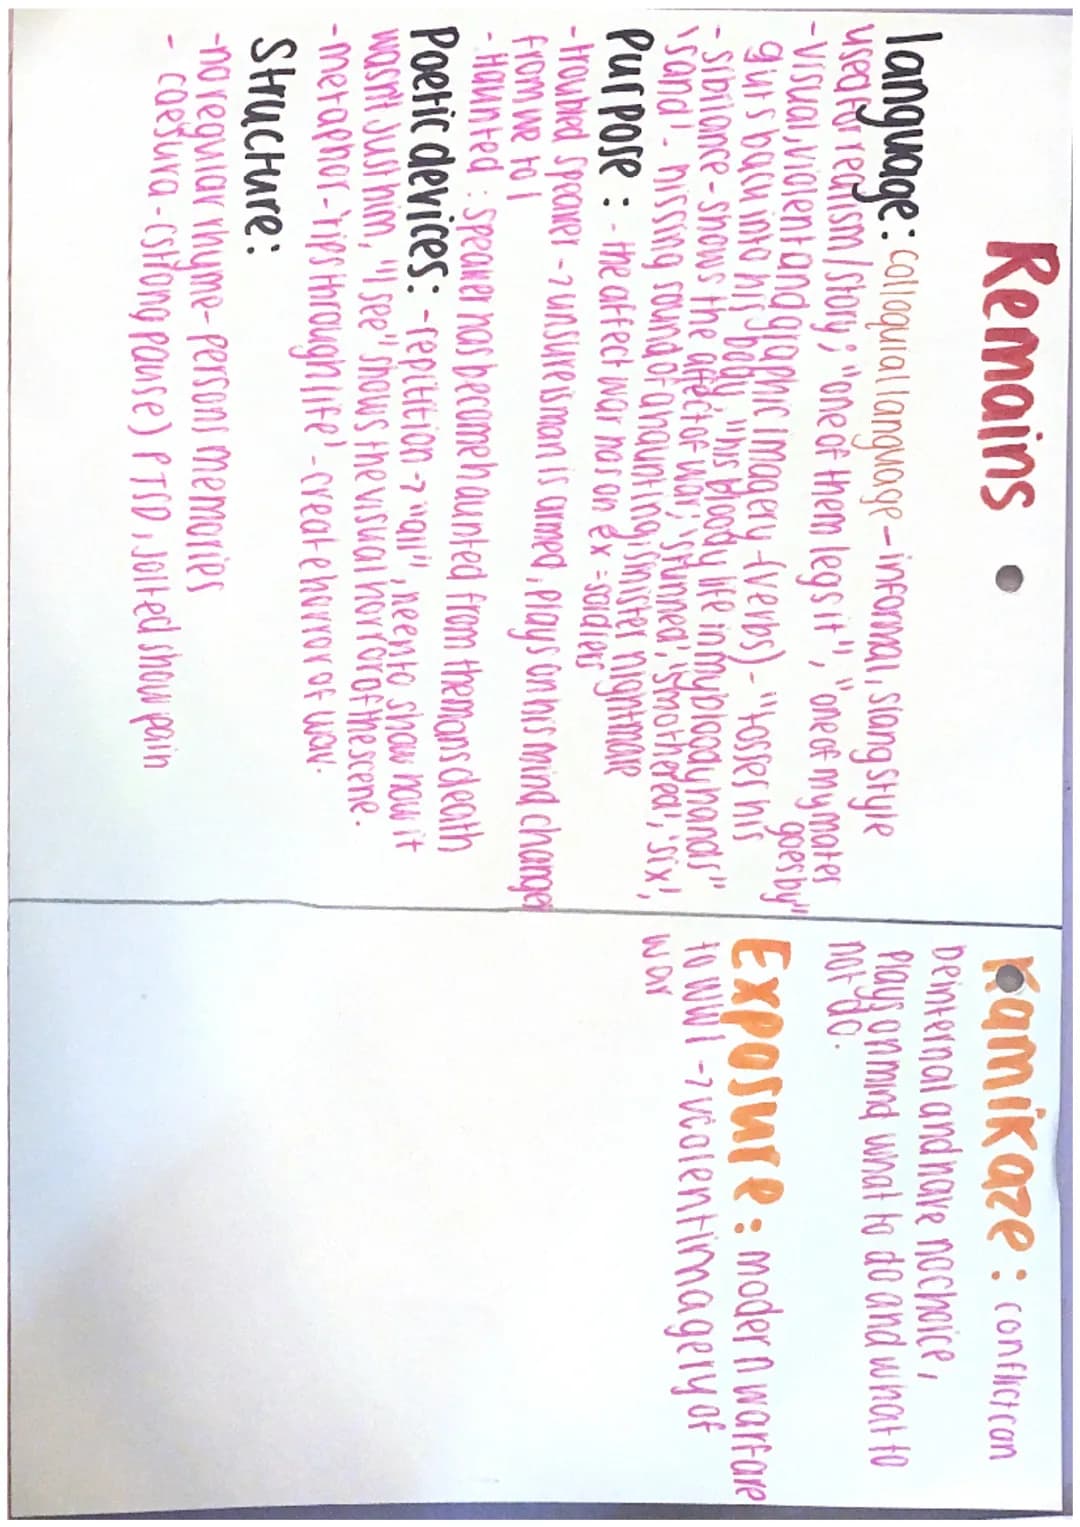 Remains
language: colloquial language - informal, slang style
used for realism / story; "one of them legs it", "one of my mates
goes by"
- visual, violent and graphic imagery - (verbs) - "tosses his
guts back into his body" "his bloody life in my bloody hands"
- Sibilance - shows the affect of war, 'stunned', 'smothered', 'six',
'sand' - hissing sound of a haunting sinister nightmare
Purpose: - the affect war has on ex-soldiers
- troubled speaker -> unsure is man is armed, plays on his mind change
from we to I
- Haunted: speaker has become haunted from the mans death
Poetic devices: - repitition -> "all", keen to show how it
wasnt just him, "I see" shows the visual horror of the scene.
- metaphor - 'rips through life' - create horror of war.
Structure:
- no regular rhyme - persons memories
- caesura - (strong pause) PTSD, jolted show pain
Kamikaze: conflict can
be internal and have no choice,
plays on mind what to do and what to
not do.
Exposure: modern warfare
to WW1 -> violent imagery of
war